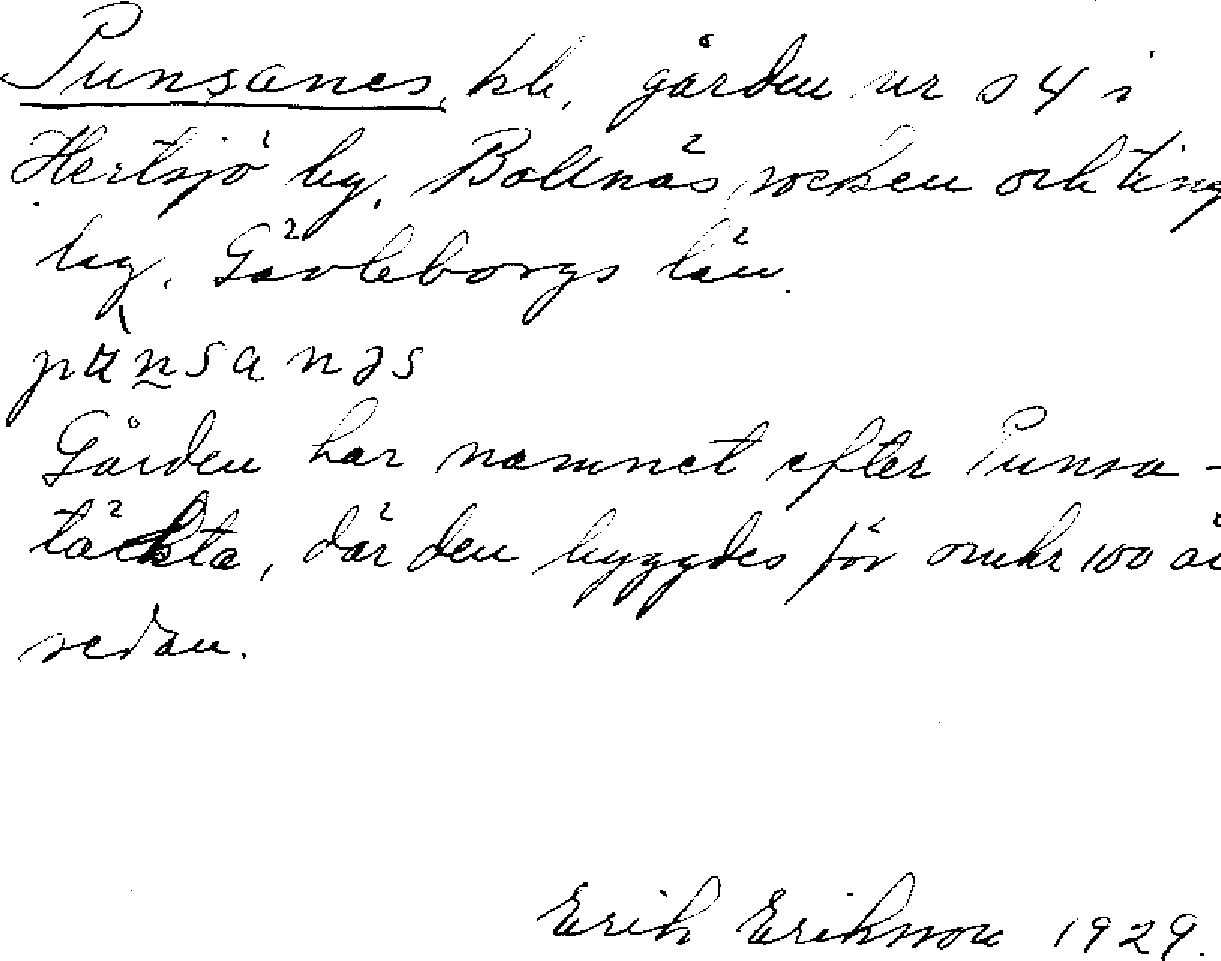 Punsanes, hb, gården nr s 4 i
Hertsjö by, Bollnäs socken och ting
by. Gävleborgs län.
Gården har namnet efter Punsa-
täckta, där den byggdes för omkr 100 å
sedan.
Erik Eriksson 1929.